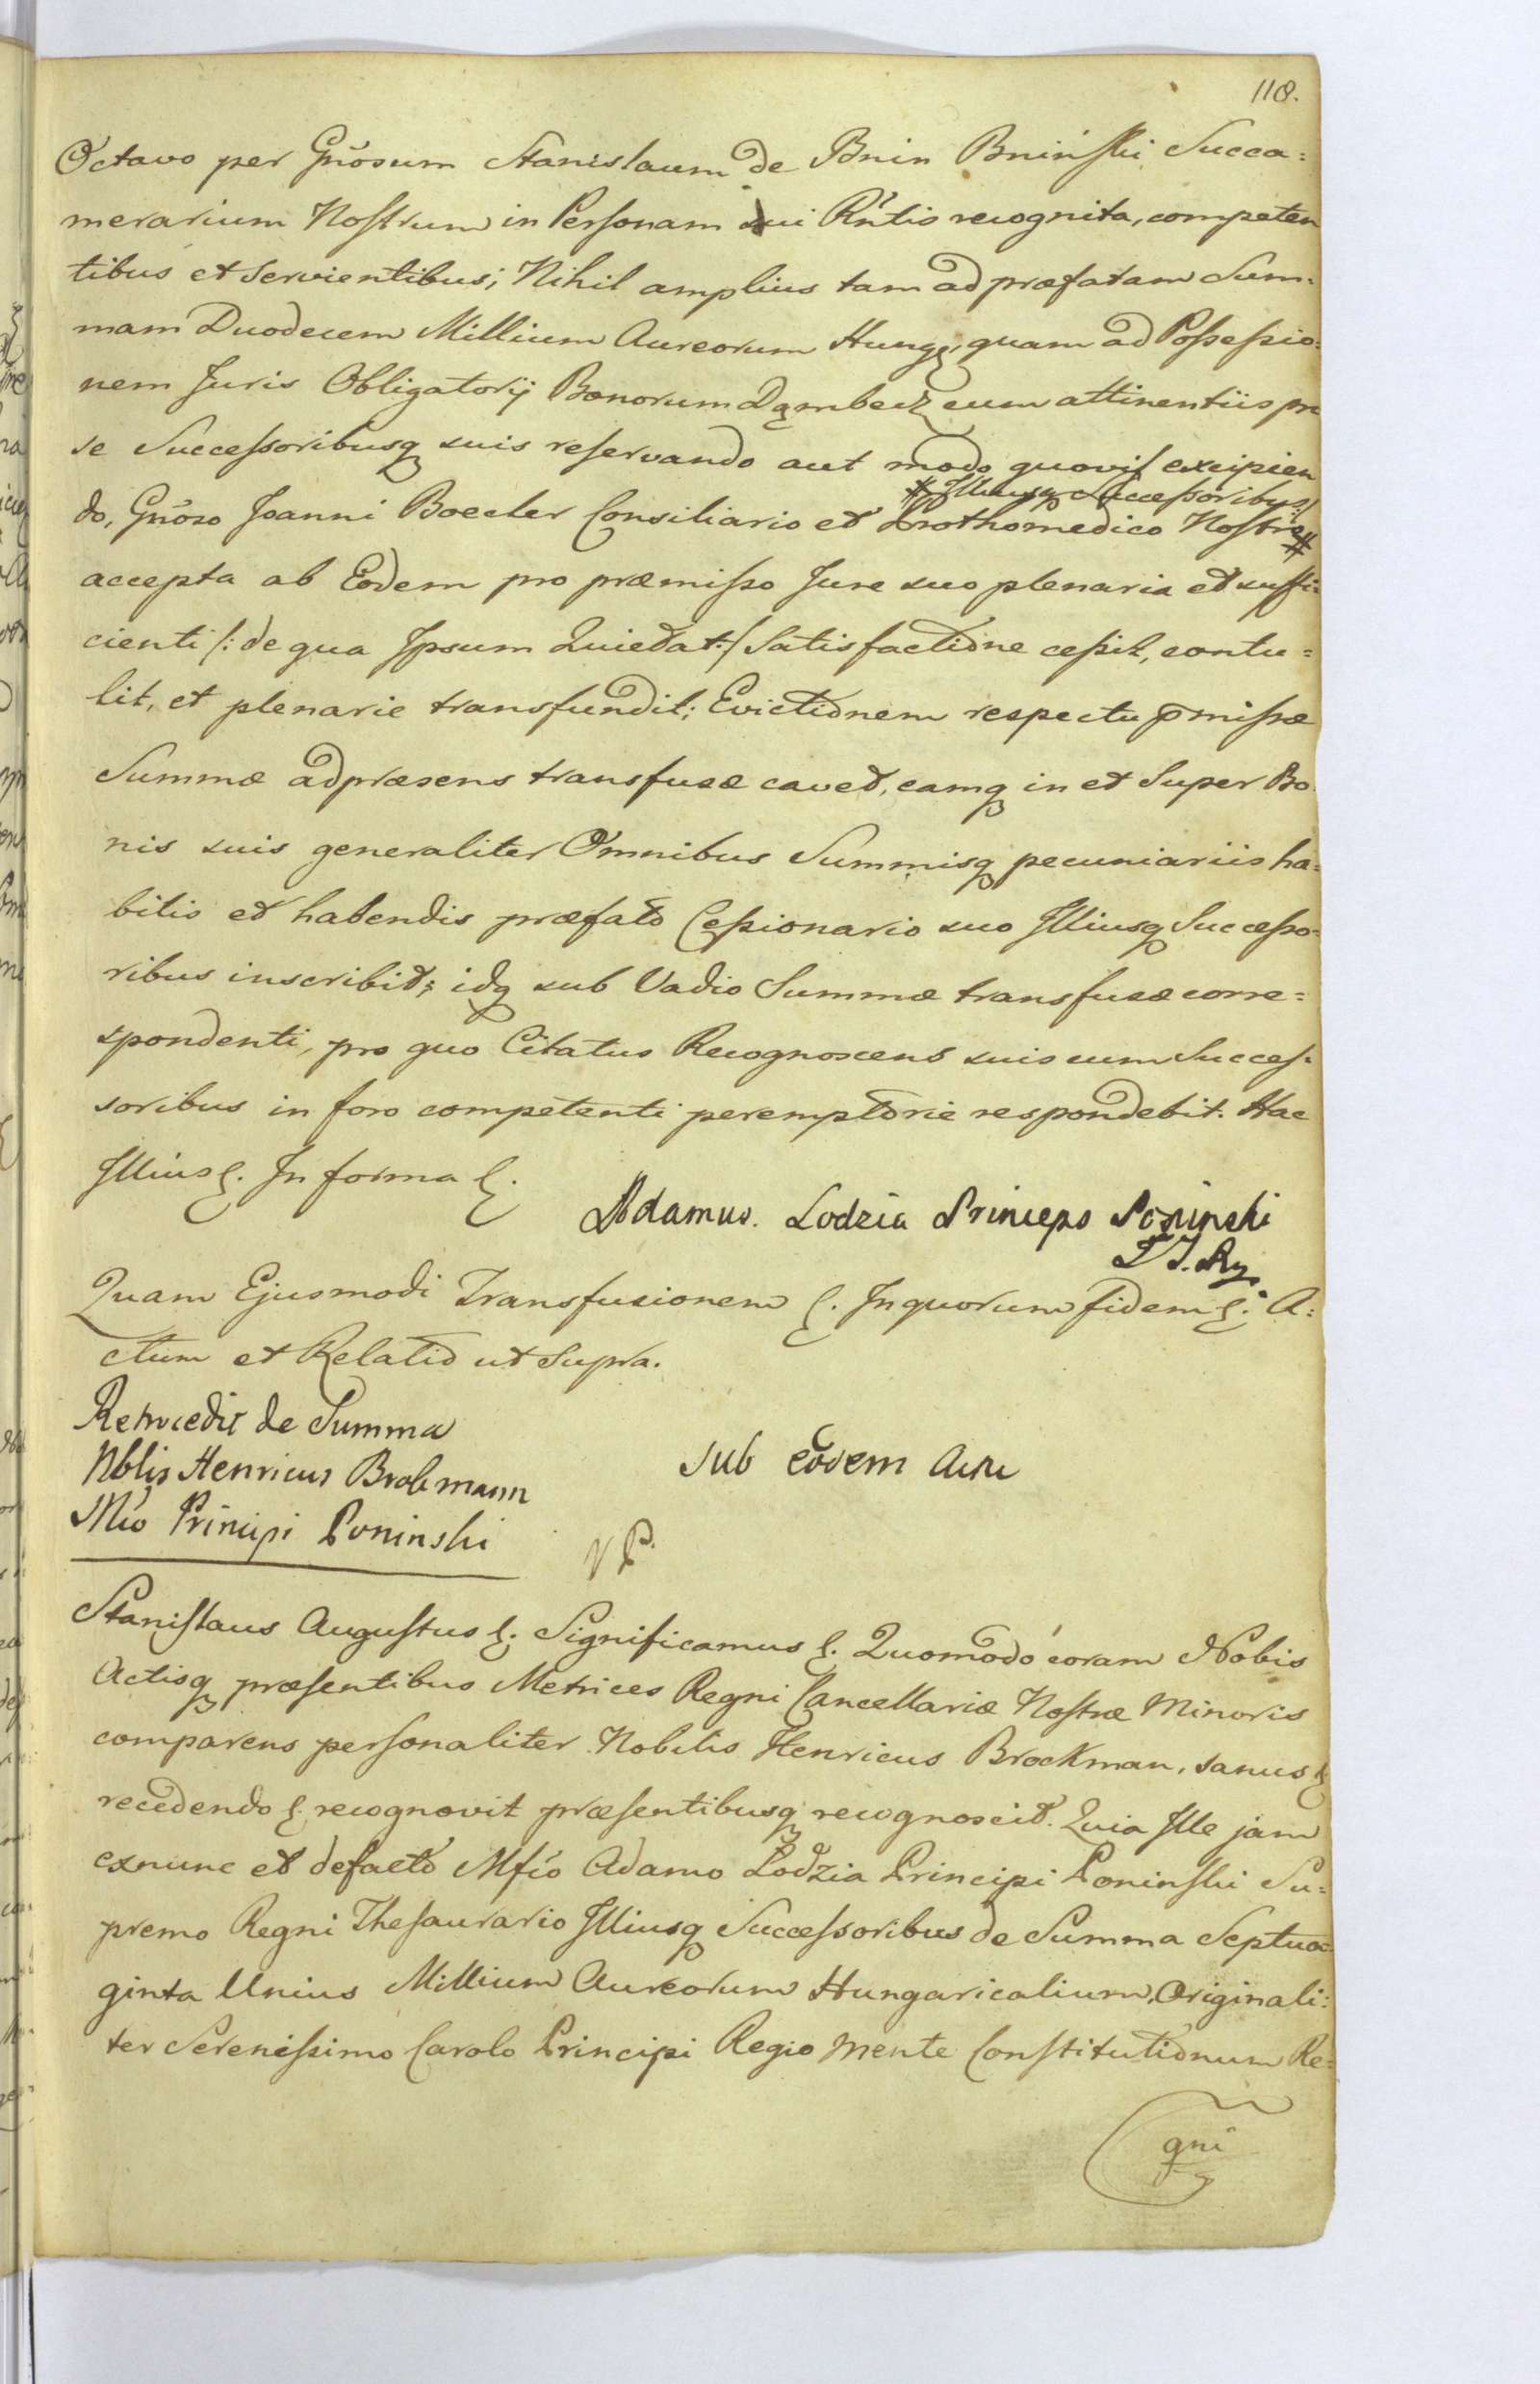 118.
Octavo per Gnosum Stanislaum de Bnin Bninski Succa=
merarium Nostrum in Personam sui Rntis recognita, competen
tibus et servientibus; Nihil amplius tam ad præfatam Sum=
mam Duodecem Millium Aureorum Hung, quam ad Possessio=
nem Juris Obligatorij Bonorum Dąmbecz cum attinentiis pro
se Successoribusq suis reservando aut modo quovis excipien
# Illiusq Successoribus
do, Gnoso Joanni Boecler Consiliario et Prothomedico Nostro #
accepta ab Eodem pro præmisso Jure suo plenaria et suffi=
cienti /: de qua Ipsum Quietat :/ Satisfactione cessit, contu=
lit, et plenarie transfundit; Evictionem respectu pmissæ
Summæ ad præsens transfusæ cavet, eamq in et Super Bo
nis suis generaliter Omnibus Summisq pecuniariis ha=
bitis et habendis præfato Cessionario suo Illiusq Successo=
ribus inscribit; idq sub Vadio Summæ transfusæ corre=
spondenti, pro quo Citatus Recognoscens suis cum Succes=
soribus in foro competenti peremptorie respondebit. Hac
Illius &. In forma &.
Adamus. Lodzia Princeps Poninski
Quam Ejusmodi Transfusionem &. In quorum fidem &. A=
ctum et Relatio ut Supra.
Retrocedit de Summa
Nblis Henricus Brokmann
Mfco Principi Poninski
Sub eodem Actu
VP.
Stanislaus Augustus &. Significamus &. Quomodo coram Nobis
Actisq præsentibus Metrices Regni Cancellariæ Nostræ Minoris
comparens personaliter Nobilis Henricus Brockman, sanus &
recedendo &. recognovit præsentibusq recognoscit. Quia Ille jam
exnunc et defacto Mfco Adamo Lodzia Principi Poninski Su=
premo Regni Thesaurario Illiusq Successoribus de Summa Septua=
ginta Unius Millium Aureorum Hungaricalium, Originali=
ter Serenissimo Carolo Principi Regio mente Constitutionum Re=
gni